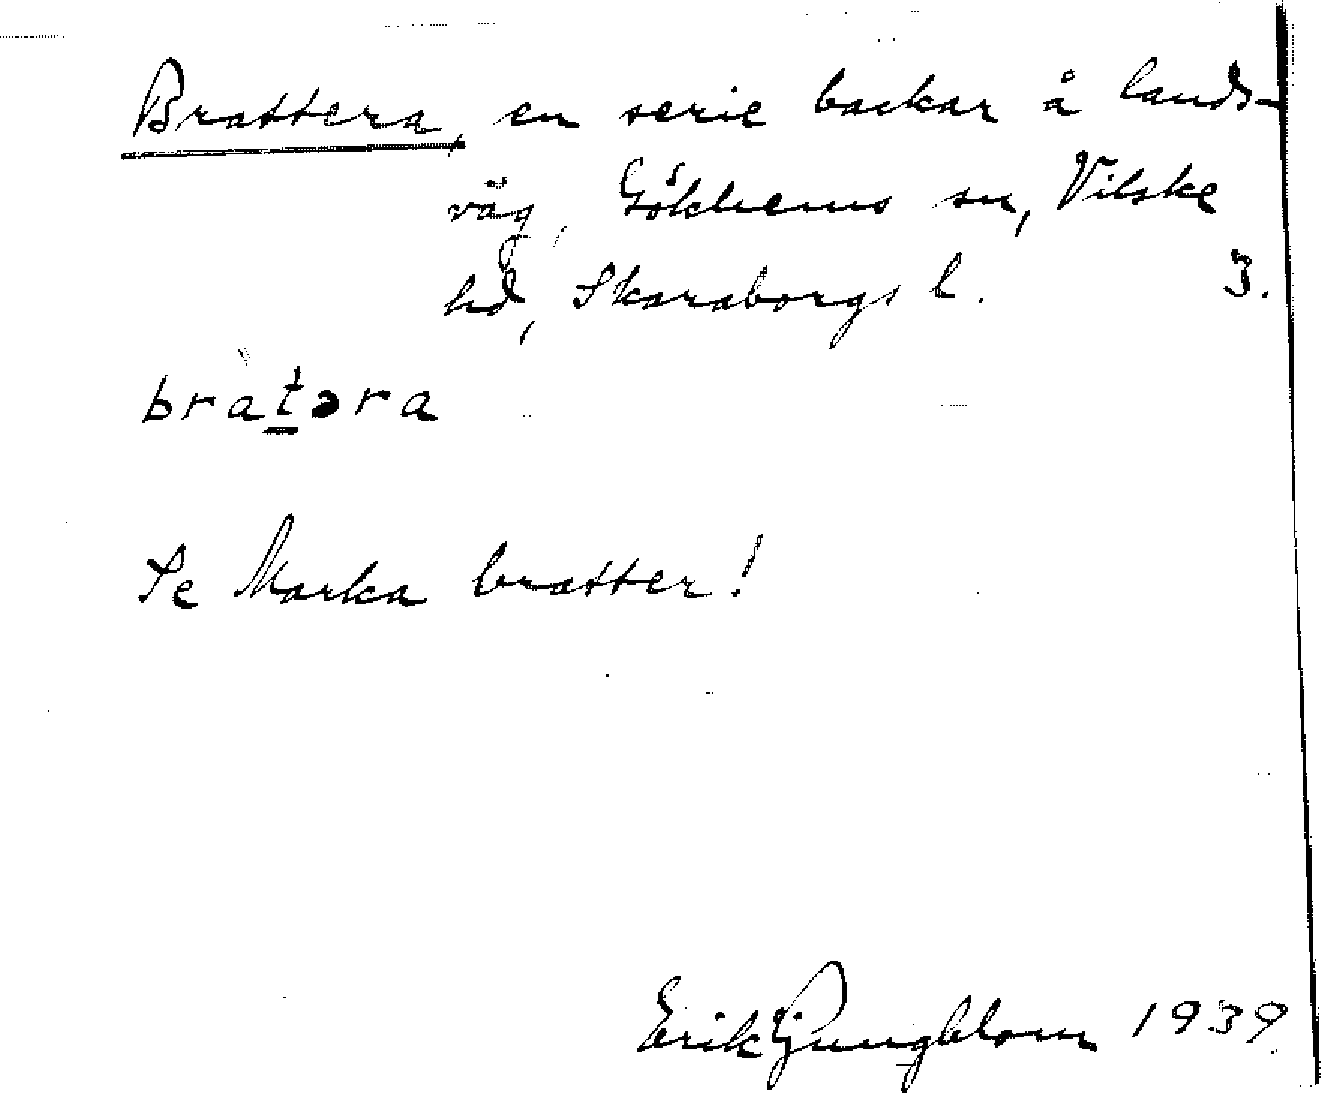 Brattera, en serie backar å lands-
väg, Gökhems sn, Vilske
hd, Skaraborgs l. 3.
bràtəra
Se Marka bratter!
Erik Ljungblom 1939